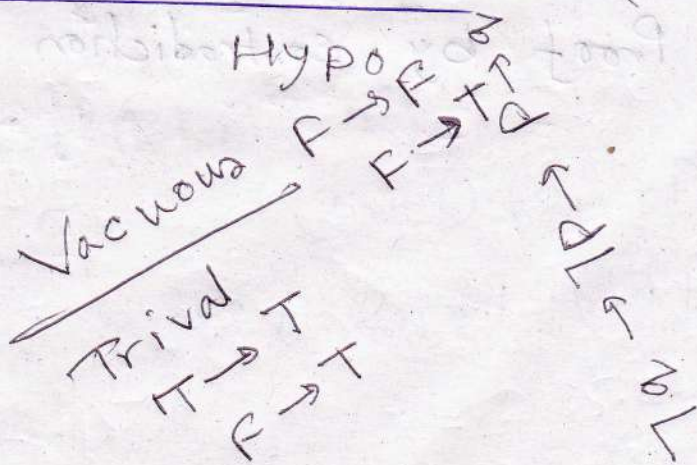 Hypo
Vacuous
F → F
F → T
Trival
T → T
F → T
¬q → ¬p → p → q